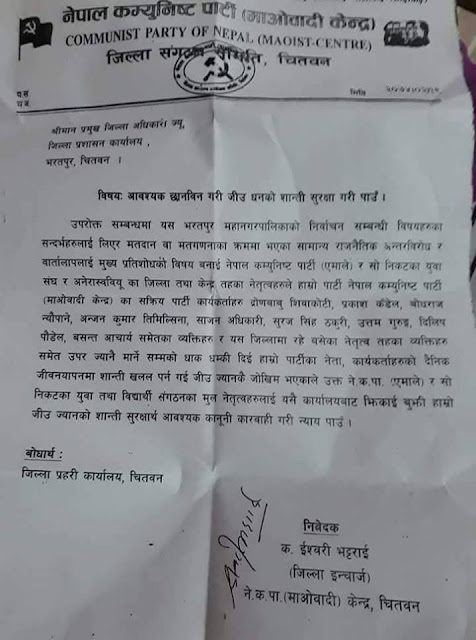 नेपाल कम्युनिष्ट पार्टी (माओवादी केन्द्र)
COMMUNIST PARTY OF NEPAL (MAOIST-CENTRE)
जिल्ला संगठन समिति, चितवन
प.स
च.न
मिति
श्रीमान प्रमुख जिल्ला अधिकारी ज्यू,
जिल्ला प्रशासन कार्यालय,
भरतपुर, चितवन ।
विषयः आवश्यक छानविन गरी जीउ धनको शान्ती सुरक्षा गरी पाउँ ।
उपरोक्त सम्बन्धमा यस भरतपुर महानगरपालिकाको निर्वाचन सम्बन्धी विषयहरुका
सन्दर्भहरुलाई लिएर मतदान वा मतगणनाका क्रममा भएका सामान्य राजनैतिक अन्तरविरोध र
वार्तालापलाई मुख्य प्रतिशोधको विषय बनाई नेपाल कम्युनिष्ट पार्टी (एमाले) र सो निकटका युवा
संघ र अनेरास्ववियू का जिल्ला तथा केन्द्र तहका नेतृत्वहरुले हाम्रो पार्टी नेपाल कम्युनिष्ट पार्टी
(माओवादी केन्द्र) का सक्रिय पार्टी कार्यकर्ताहरु द्रोणबाबु शिवाकोटी, प्रकाश कँडेल, बोधराज
न्यौपाने, अन्जन कुमार तिमिल्सिना, साजन अधिकारी, सुरज सिंह ठकुरी, उत्तम गुरुङ, दिलिप
पौडेल, बसन्त आचार्य समेतका व्यक्तिहरु र यस जिल्लामा रहे बसेका नेतृत्व तहका व्यक्तिहरु
समेत उपर ज्यानै मार्ने सम्मको धाक धम्की दिई हाम्रो पार्टीका नेता, कार्यकर्ताहरुको दैनिक
जीवनयापनमा शान्ती खलल पर्न गई जीउ ज्यानकै जोखिम भएकाले उक्त ने.क.पा. (एमाले) र सो
निकटका युवा तथा विद्यार्थी संगठनका मुल नेतृत्वहरुलाई यसै कार्यालयबाट झिकाई बुझी हाम्रो
जीउ ज्यानको शान्ती सुरक्षार्थ आवश्यक कानूनी कारवाही गरी न्याय पाउँ ।
बोधार्थ :
जिल्ला प्रहरी कार्यालय, चितवन
निवेदक
क. ईश्वरी भट्टराई
(जिल्ला इन्चार्ज)
ने.क.पा.(माओवादी) केन्द्र, चितवन